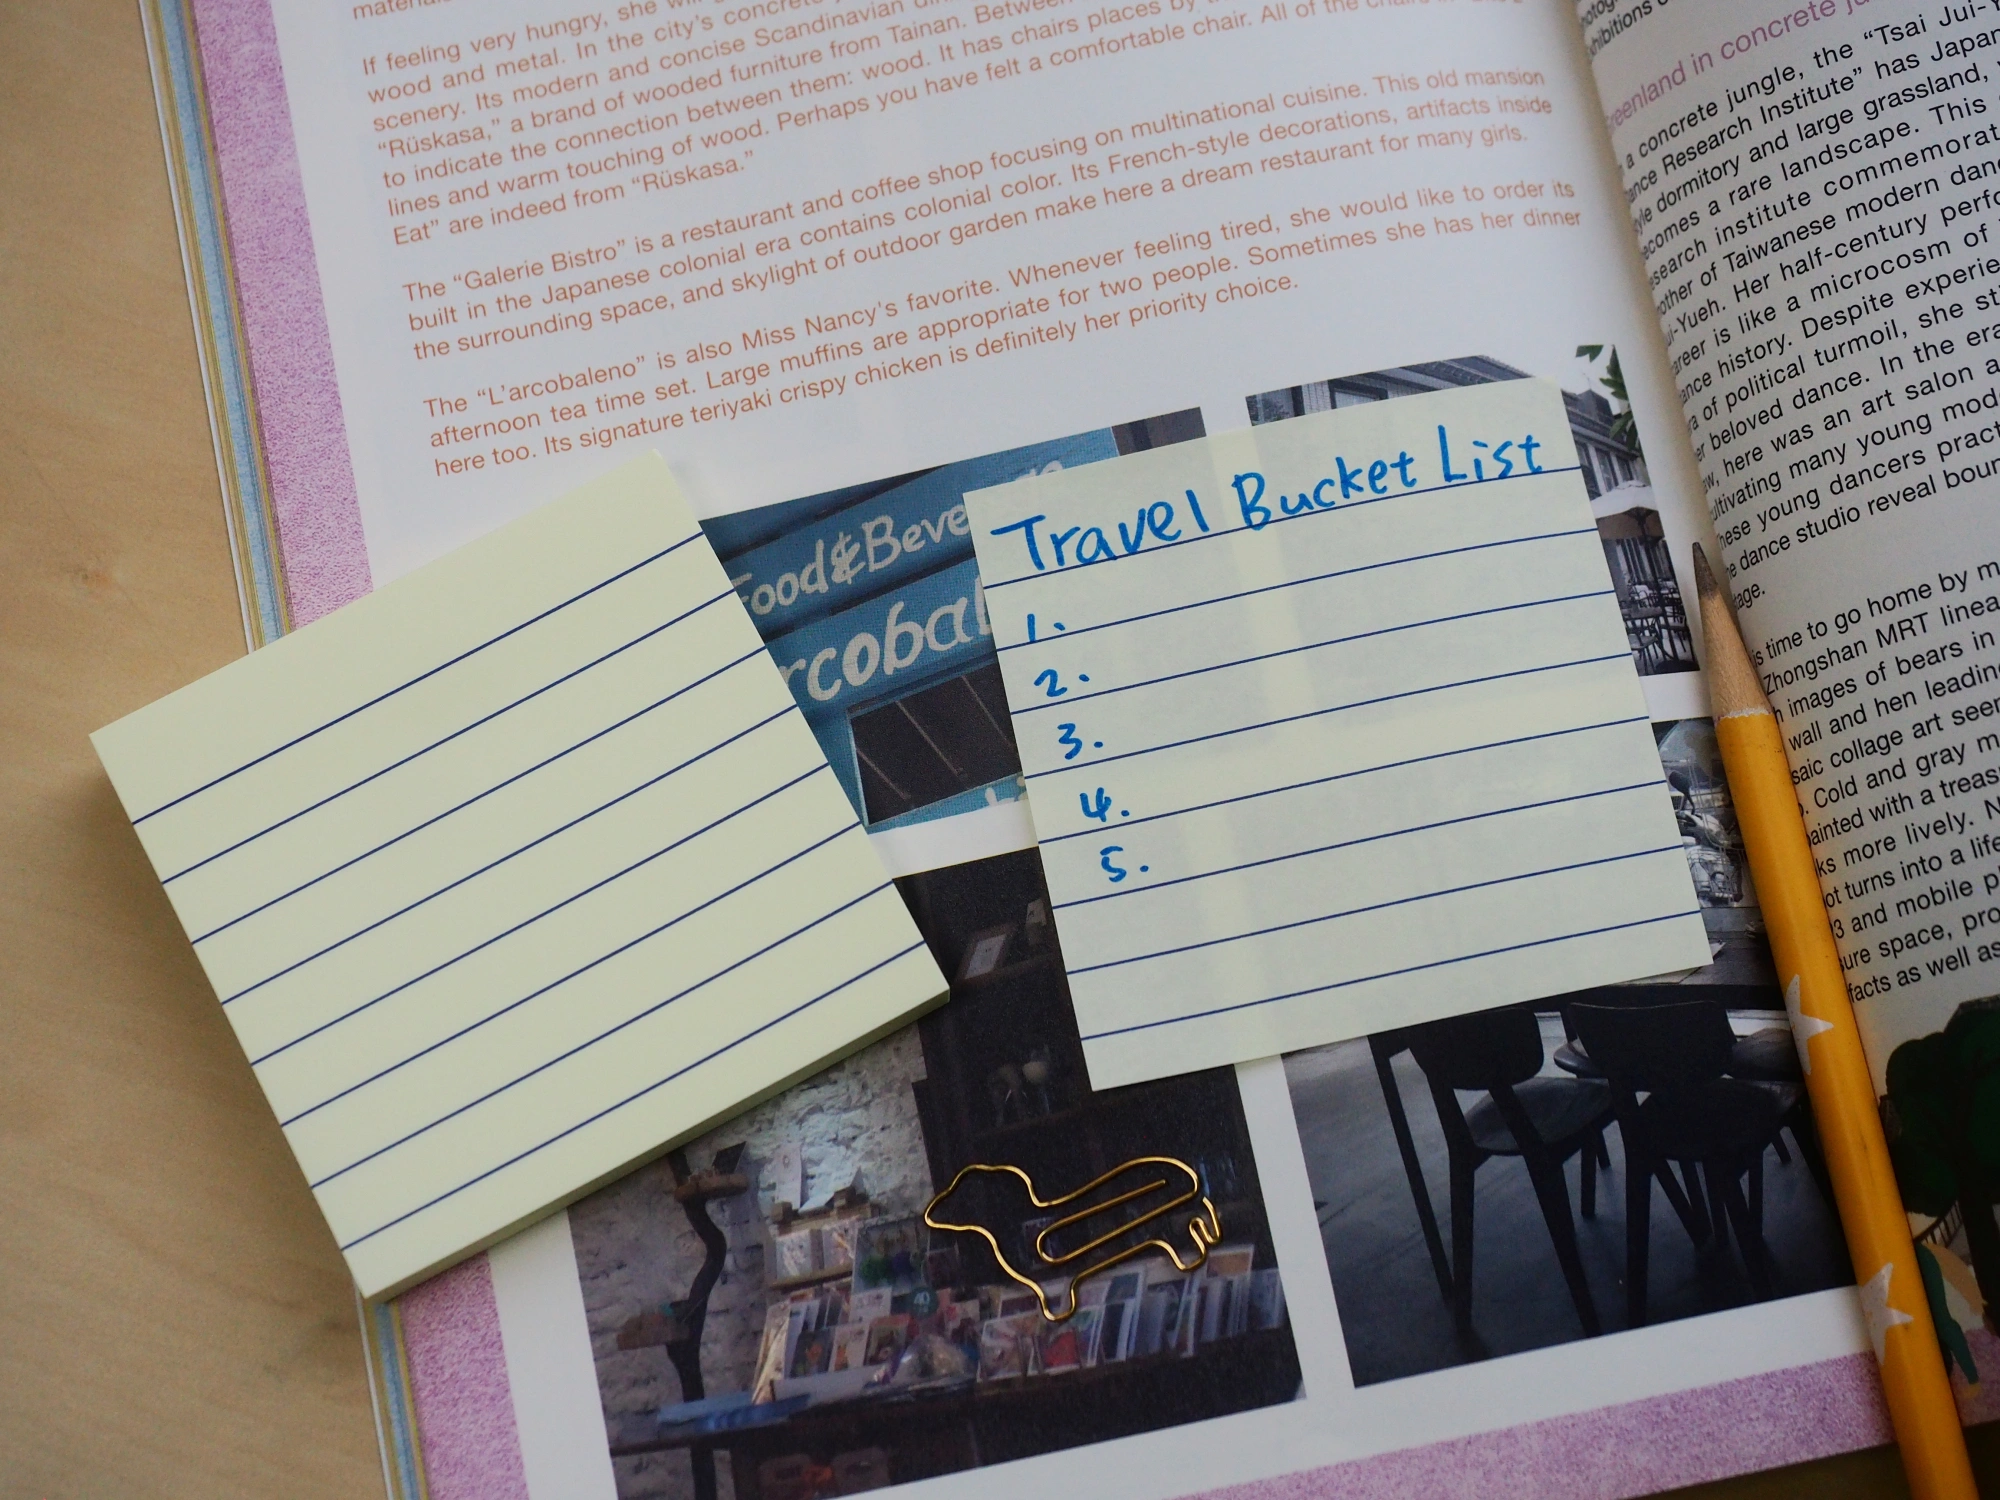 If feeling very hungry, she will
wood and metal. In the city's concrete
scenery. Its modern and concise Scandinavian
“Rüskasa,” a brand of wooded furniture from Tainan. Between
to indicate the connection between them: wood. It has chairs places by
lines and warm touching of wood. Perhaps you have felt a comfortable chair. All of the chairs in
Eat” are indeed from “Rüskasa.”
The “Galerie Bistro” is a restaurant and coffee shop focusing on multinational cuisine. This old mansion
built in the Japanese colonial era contains colonial color. Its French-style decorations, artifacts inside
the surrounding space, and skylight of outdoor garden make here a dream restaurant for many girls.
The “L'arcobaleno” is also Miss Nancy's favorite. Whenever feeling tired, she would like to order its
afternoon tea time set. Large muffins are appropriate for two people. Sometimes she has her dinner
here too. Its signature teriyaki crispy chicken is definitely her priority choice.
Food & Beve
rcobal
Travel Bucket List
1.
2.
3.
4.
5.
reenland in concrete
a concrete jungle, the “Tsai Jui-Y
ance Research Institute” has Japan
yle dormitory and large grassland,
ecomes a rare landscape. This
esearch institute commemorat
other of Taiwanese modern danc
ui-Yueh. Her half-century perfo
areer is like a microcosm of
ance history. Despite experie
ra of political turmoil, she sti
er beloved dance. In the era
ow, here was an art salon a
ultivating many young mod
hese young dancers pract
e dance studio reveal boun
tage.
is time to go home by m
Zhongshan MRT linea
h images of bears in
wall and hen leading
saic collage art seen
o. Cold and gray m
painted with a treas
ks more lively. N
ot turns into a life
3 and mobile pl
sure space, pro
facts as well as